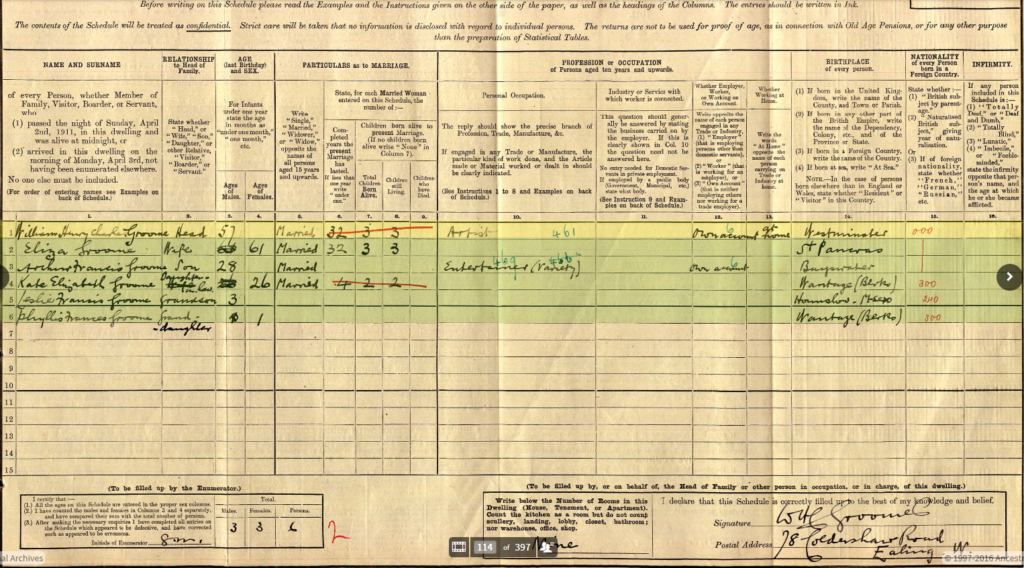 Before writing on this Schedule please read the Examples and the Instructions given on the other side of the paper, as well as the headings of the Columns. The entries should be written in Ink.
The contents of the Schedule will be treated as confidential. Strict care will be taken that no information is disclosed with regard to individual persons. The returns are not to be used for proof of age, as in connection with Old Age Pensions, or for any other purpose
than the preparation of Statistical Tables.
NAME AND SURNAME
RELATIONSHIP to Head of Family.
AGE (last Birthday) and SEX.
PARTICULARS as to MARRIAGE.
PROFESSION or OCCUPATION
of Persons aged ten years and upwards.
BIRTHPLACE
of every person.
NATIONALITY
of every Person born in a Foreign Country.
INFIRMITY.
of every Person, whether Member of Family, Visitor, Boarder, or Servant, who
(1) passed the night of Sunday, April 2nd, 1911, in this dwelling and was alive at midnight, or
(2) arrived in this dwelling on the morning of Monday, April 3rd, not having been enumerated elsewhere.
No one else must be included.
(For order of entering names see Examples on back of Schedule.)
State whether "Head," or "Wife," "Son," "Daughter," or other Relative, "Visitor," "Boarder," or "Servant."
For Infants under one year state the age in months as "under one month," "one month," etc.
Ages of Males.
Ages of Females.
Write "Single," "Married," "Widower," or "Widow," opposite the names of all persons aged 15 years and upwards.
State, for each Married Woman entered on this Schedule, the number of :—
Completed years the present Marriage has lasted. If less than one year write "under one."
Children born alive to present Marriage. (If no children born alive write "None" in Column 7).
Total Children Born Alive.
Children still Living.
Children who have Died.
Personal Occupation.
The reply should show the precise branch of Profession, Trade, Manufacture, &c.
If engaged in any Trade or Manufacture, the particular kind of work done, and the Article made or Material worked or dealt in should be clearly indicated.
(See Instructions 1 to 8 and Examples on back of Schedule.)
Industry or Service with which worker is connected.
This question should generally be answered by stating the business carried on by the employer. If this is clearly shown in Col. 10 the question need not be answered here.
No entry needed for Domestic Servants in private employment. If employed by a public body (Government, Municipal, etc.) state what body.
(See Instruction 9 and Examples on back of Schedule.)
Whether Employer, Worker, or Working on Own Account.
Whether Working at Home.
1. 2. 3. 4. 5. 6. 7. 8. 9. 10. 11. 12. 13. 14. 15. 16.
1 William Henry Groome Head 57 Married 32 3 3 Artist 461 Own account At home Westminster 000
2 Eliza Groome Wife 61 Married 32 3 3 St Pancras
3 Arthur Francis Groome Son 28 Married Entertainer (Variety) own account Bayswater
4 Kate Elizabeth Groome Daughter-in-law 26 Married 4 2 2 Wantage (Berks) 300
5 Leslie Francis Groome Grandson 3 Hounslow 240
6 Phyllis Frances Groome Grand-daughter 1 Wantage (Berks) 300
7
8
9
10
11
12
13
14
15
(To be filled up by the Enumerator.)
I certify that :—
(1.) All the ages on this Schedule are entered in the proper sex columns.
(2.) I have counted the males and females in Columns 3 and 4 separately, and have compared their sum with the total number of persons.
(3.) After making the necessary enquiries I have completed all entries on the Schedule which appeared to be defective, and have corrected such as appeared to be erroneous.
Initials of Enumerator
Total.
Males. Females. Persons.
3 3 6
2
(To be filled up by, or on behalf of, the Head of Family or other person in occupation, or in charge, of this dwelling.)
Write below the Number of Rooms in this Dwelling (House, Tenement, or Apartment). Count the kitchen as a room but do not count scullery, landing, lobby, closet, bathroom; nor warehouse, office, shop.
I declare that this Schedule is correctly filled up to the best of my knowledge and belief.
Signature W H C Groome
Postal Address 78 Coldershaw Road
Ealing W
114 of 397
al Archives
© 1997-2016 Ancest